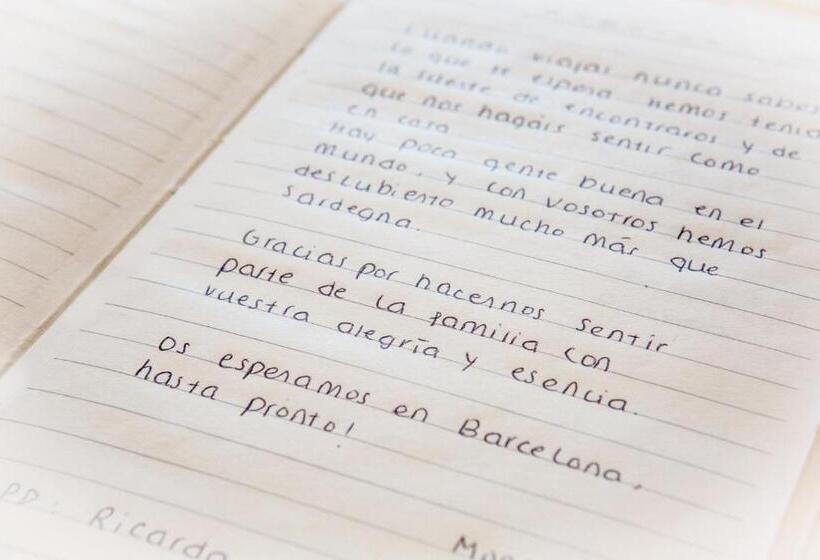 Cuando viajas nunca sabes
lo que te espera hemos tenido
la suerte de encontraros y de
que nos hagáis sentir como
en casa
Hay poca gente buena en el
mundo, y con vosotros hemos
descubierto mucho más que
Sardegna.
Gracias por hacernos sentir
parte de la familia con
vuestra alegría y esencia.
Os esperamos en Barcelona,
hasta pronto!
PD: Ricardo